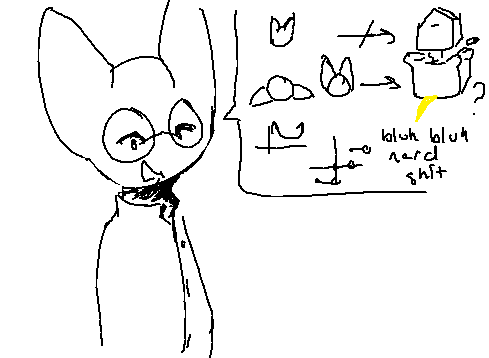 ?
bluh bluh
nerd
shit